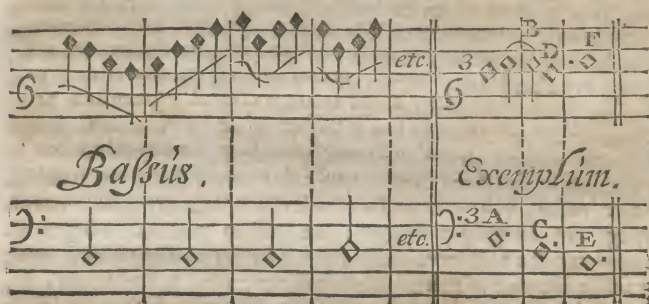 etc. 3 B D F
Baſsús. Exemplúm.
etc. 3 A C E